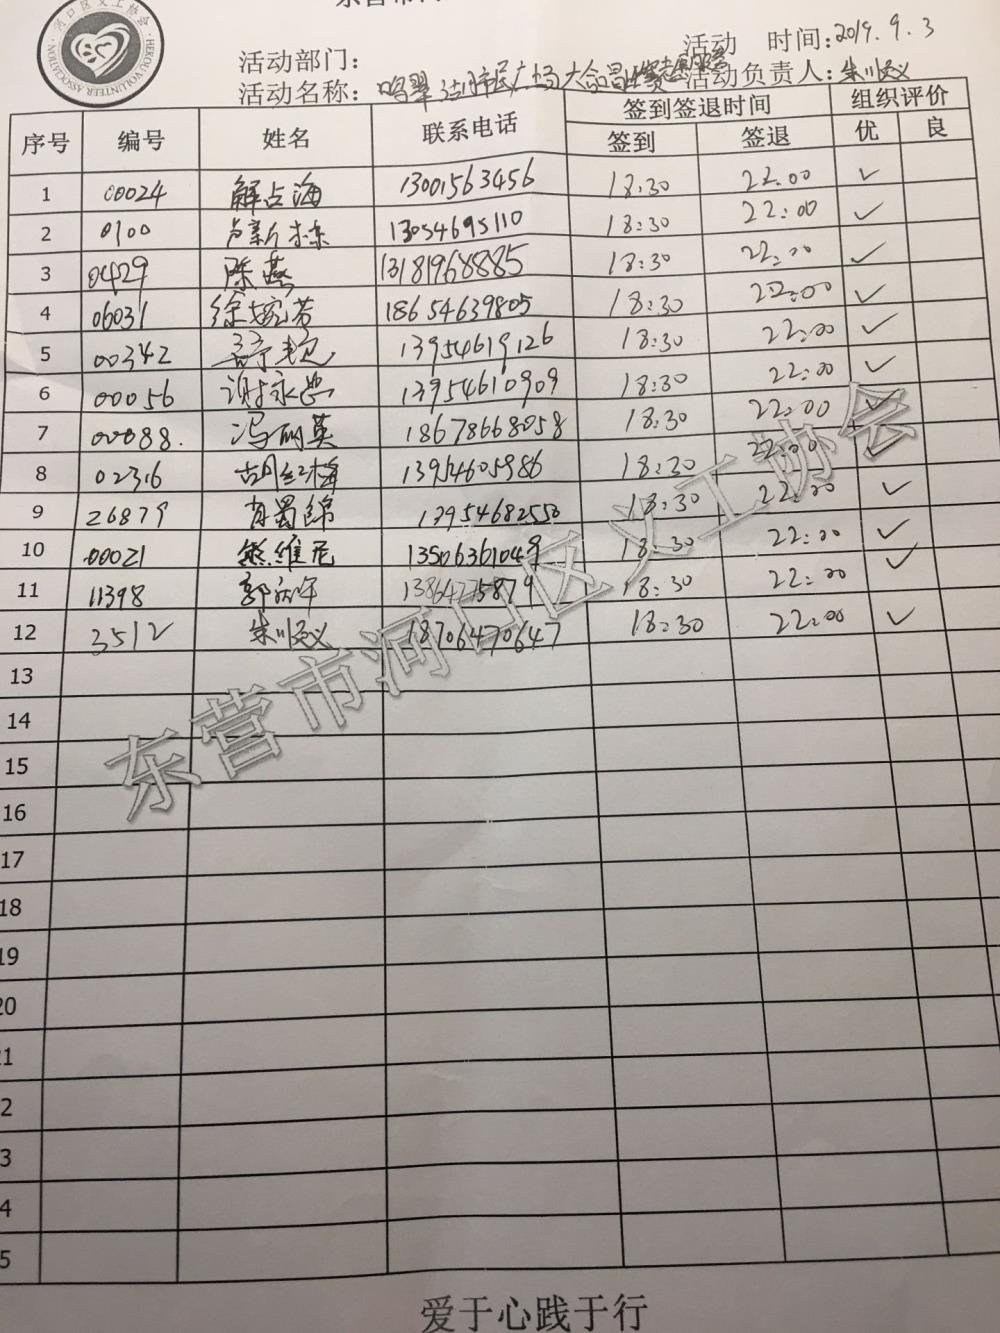 河口区义工协会
HEKOU VOLUNTEER ASSOCIATION
活动部门：
活动 时间：2019.9.3
活动名称：鸣翠湖市民广场大合唱比赛
活动负责人：朱顺义
序号 编号 姓名 联系电话 签到签退时间 组织评价
签到 签退 优 良
1 00024 解占海 13001563456 18:30 22:00 ✓
2 0100 13054695110 18:30 22:00 ✓
3 0429 陈燕 13181968885 18:30 22:00 ✓
4 06031 徐婉芳 18654639805 18:30 22:00 ✓
5 00342 13954619126 18:30 22:00 ✓
6 00056 谢永 13954610909 18:30 22:00 ✓
7 00088. 冯丽英 18678668058 18:30 22:00 ✓
8 02316 胡红梅 13954605986 18:30 22:00 ✓
9 26879 肖蜀锦 13954682550 18:30 22:00 ✓
10 00021 熊维尼 13506361049 18:30 22:00 ✓
11 11398 郭庆年 13864775879 18:30 22:00 ✓
12 3512 朱顺义 18706470647 18:30 22:00 ✓
13
14
15
16
17
18
19
20
21
2
3
4
5
东营市河口区义工协会
爱于心践于行